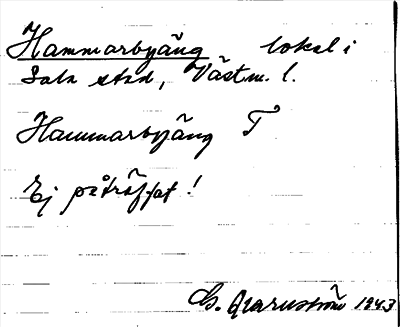 Hammarbyäng lokal i
Sala stad, Västm. l.
Hammarbyäng T
Ej påträffat!
G. Qvarnström 1943